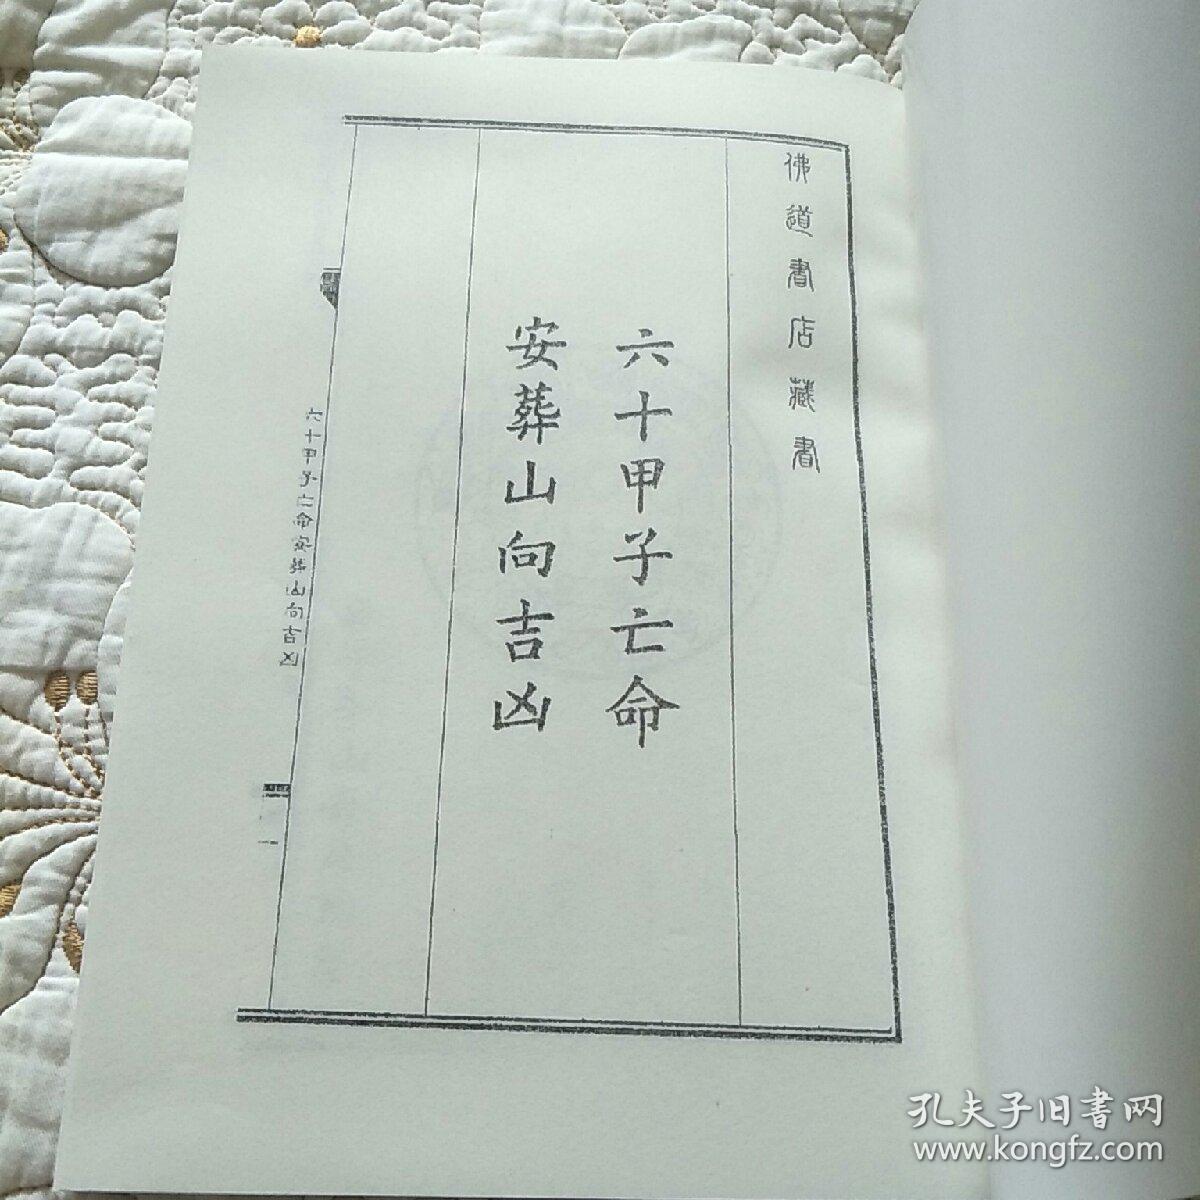 佛道書店藏書
六十甲子亡命
安葬山向吉凶
六十甲子亡命安葬山向吉凶
一
孔夫子旧書网
www.kongfz.com